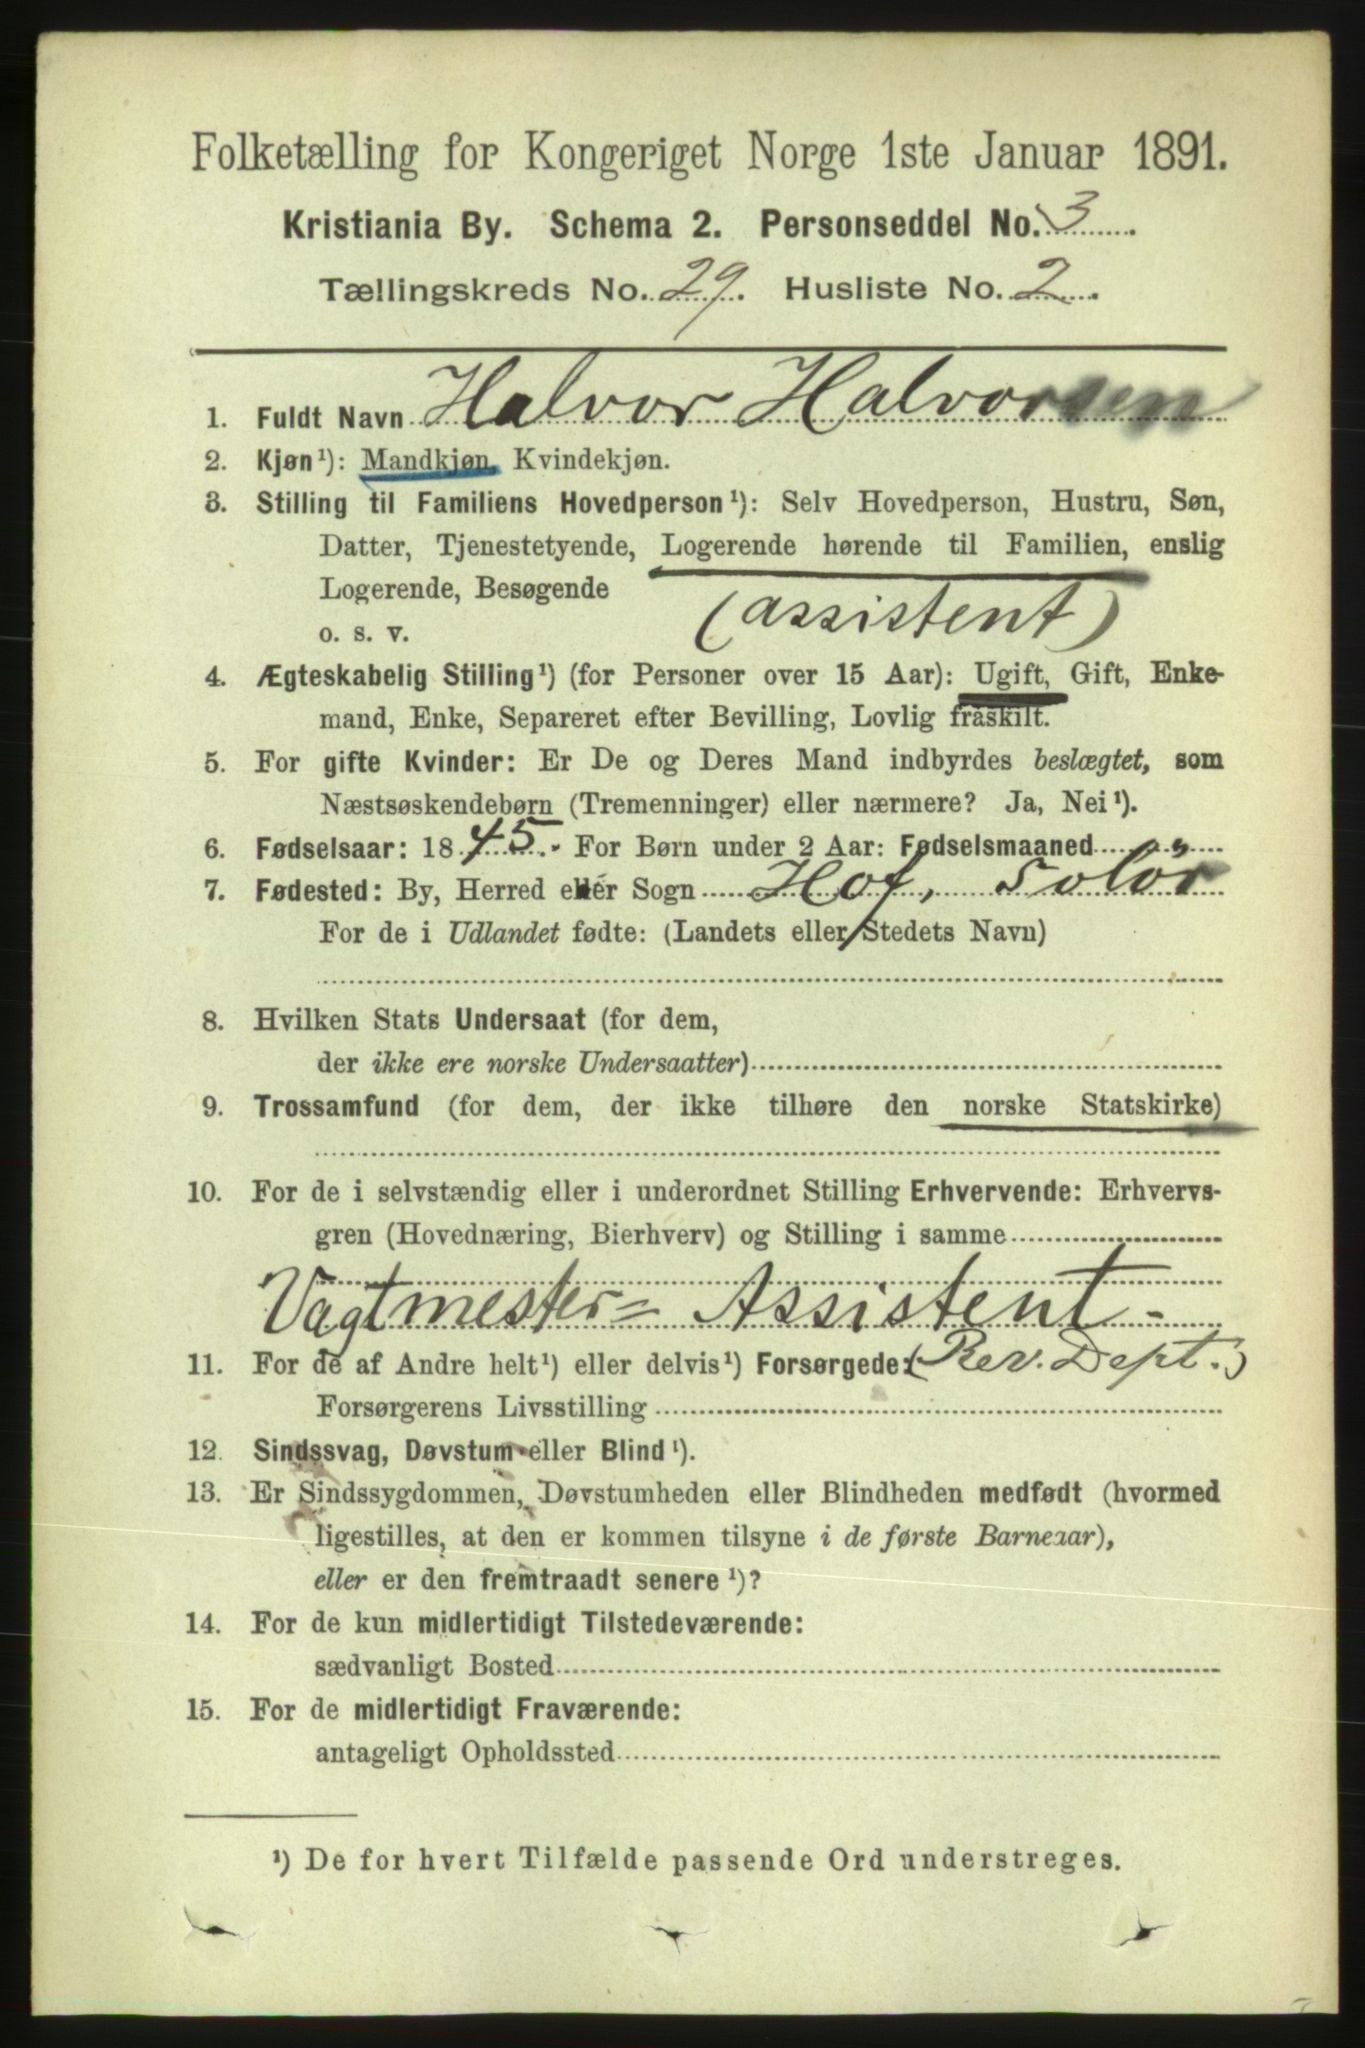 Folketælling for Kongeriget Norge 1ste Januar 1891.
Kristiania By. Schema 2. Personseddel No. 3.
Tællingskreds No. 29. Husliste No. 2.
1. Fuldt Navn Halvor Halvorsen
2. Kjøn¹): Mandkjøn, Kvindekjøn.
3. Stilling til Familiens Hovedperson¹): Selv Hovedperson, Hustru, Søn,
Datter, Tjenestetyende, Logerende hørende til Familien, enslig
Logerende, Besøgende
o. s. v. (assistent)
4. Ægteskabelig Stilling¹) (for Personer over 15 Aar): Ugift, Gift, Enke-
mand, Enke, Separeret efter Bevilling, Lovlig fraskilt.
5. For gifte Kvinder: Er De og Deres Mand indbyrdes beslægtet, som
Næstsøskendebørn (Tremenninger) eller nærmere? Ja, Nei¹).
6. Fødselsaar: 1845. For Børn under 2 Aar: Fødselsmaaned
7. Fødested: By, Herred eller Sogn Hof, Solör
For de i Udlandet fødte: (Landets eller Stedets Navn)
8. Hvilken Stats Undersaat (for dem,
der ikke ere norske Undersaatter)
9. Trossamfund (for dem, der ikke tilhøre den norske Statskirke)
10. For de i selvstændig eller i underordnet Stilling Erhvervende: Erhvervs-
gren (Hovednæring, Bierhverv) og Stilling i samme
Vagtmester= Assistent-
11. For de af Andre helt¹) eller delvis¹) Forsørgede: (Rev. Dept.)
Forsørgerens Livsstilling
12. Sindssvag, Døvstum eller Blind¹).
13. Er Sindssygdommen, Døvstumheden eller Blindheden medfødt (hvormed
ligestilles, at den er kommen tilsyne i de første Barneaar),
eller er den fremtraadt senere¹)?
14. For de kun midlertidigt Tilstedeværende:
sædvanligt Bosted
15. For de midlertidigt Fraværende:
antageligt Opholdssted
¹) De for hvert Tilfælde passende Ord understreges.